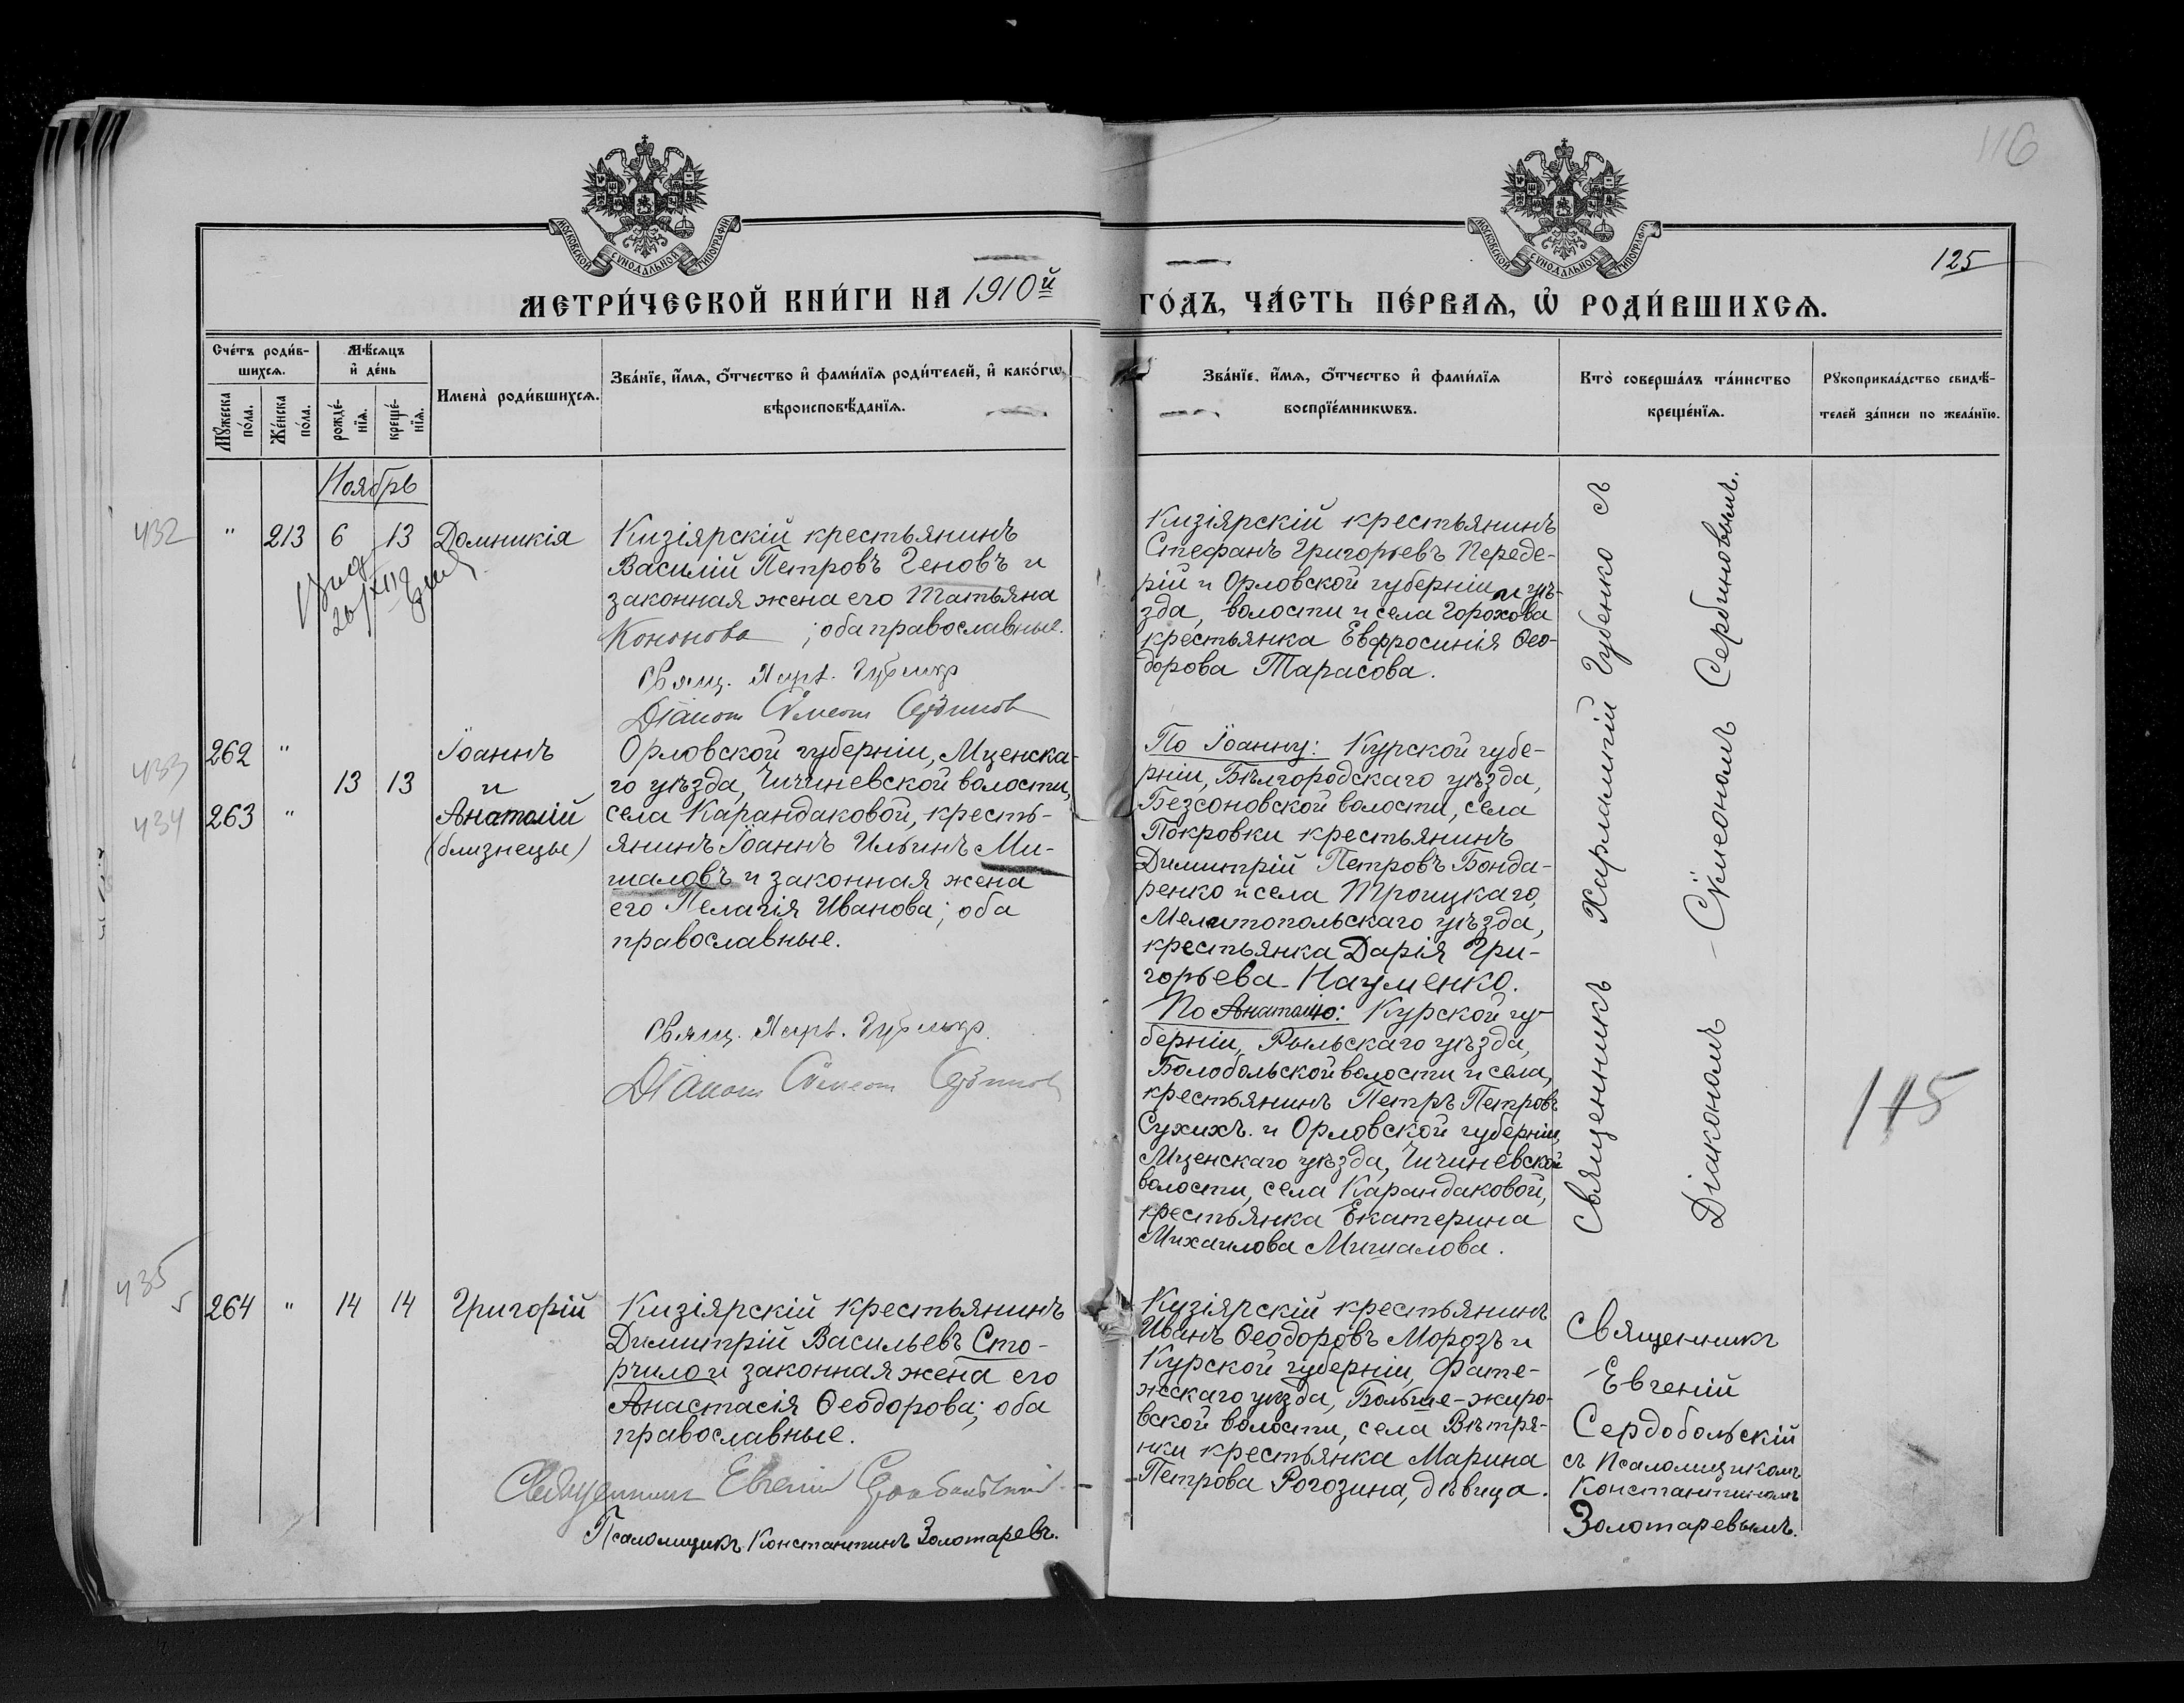 116
МОСКОВСКОЙ СѴНОДАЛЬНОЙ ТИПОГРАФІИ
МОСКОВСКОЙ СѴНОДАЛЬНОЙ ТИПОГРАФІИ
125
МЕТРИ́ЧЕСКОЙ КНИ́ГИ НА 1910й
ГО́ДЪ, ЧА́СТЬ ПЕ́РВАѦ, Ѡ҆ РОДИ́ВШИХСѦ.
Сче́тъ роди́в-
шихсѧ.
Мѣ́сѧцъ
и҆ де́нь
Мꙋ́жеска по́ла.
Же́нска по́ла.
рожде́-
нїѧ.
креще́-
нїѧ.
Имена̀ роди́вшихсѧ.
Зва́нїе, и҆́мѧ, о҆́тчество и҆ фами́лїѧ роди́телей, и҆ како́гѡ
вѣроисповѣ́данїѧ.
Зва́нїе, и҆́мѧ, о҆́тчество и҆ фами́лїѧ
воспрїе́мникѡвъ.
Кто̀ соверша́лъ та́инство
креще́нїѧ.
Рꙋкоприкла́дство свидѣ́-
телей за́писи по жела́нїю.
Ноябрь
432 " 213 6 13 Домникія
Кизіярскій крестьянинъ
Василій Петровъ Геновъ и
законная жена его Татьяна
Кононова ; оба православные.
Свящ. Харл. Губенко
Діаконъ Сѵмеонъ Сербиновъ
Кизіярскій крестьянинъ
Стефанъ Григорьевъ Переде-
рій и Орловской губерніи и уѣ-
зда, волости и села Горохова
крестьянка Евфросинія Ѳео-
дорова Тарасова.
Священникъ Харлампій Губенко съ
Діакономъ Сѵмеономъ Сербиновымъ.
433 262 "
13 13
434 263 "
Іоаннъ
и
Анатолій
(близнецы)
Орловской губерніи, Мценска-
го уѣзда, Чичиневской волости,
села Карандаковой, кресть-
янинъ Іоаннъ Ильинъ Ми-
шаловъ и законная жена
его Пелагія Иванова; оба
православные.
Свящ. Харл. Губенко
Діаконъ Сѵмеонъ Сербиновъ
По Іоанну: Курской губе-
рніи, Бѣлгородскаго уѣзда,
Безсоновской волости, села
Покровки крестьянинъ
Димитрій Петровъ Бонда-
ренко и села Троицкаго,
Мелитопольскаго уѣзда,
крестьянка Дарія Гри-
горьева Науменко.
По Анатолію: Курской гу-
берніи, Рыльскаго уѣзда,
Болобольской волости и села,
крестьянинъ Петръ Петровъ
Сухихъ и Орловской губерніи,
Мценскаго уѣзда, Чичиневской
волости, села Карандаковой,
крестьянка Екатерина
Михаилова Мишалова.
115
435 264 " 14 14 Григорій
Кизіярскій крестьянинъ
Димитрій Васильевъ Сто-
рчило и законная жена его
Анастасія Ѳеодорова; оба
православные.
Священникъ Евгеній Сердобольскій
Псаломщикъ Константинъ Золотаревъ.
Кизіярскій крестьянинъ
Иванъ Ѳеодоровъ Морозъ и
Курской губерніи, Фате-
жскаго уѣзда, Больше-жиро-
вской волости, села Вѣтря-
нки крестьянка Марина
Петрова Рогозина, дѣвица.
Священникъ
Евгеній
Сердобольскій
съ Псаломщикомъ
Константиномъ
Золотаревымъ.